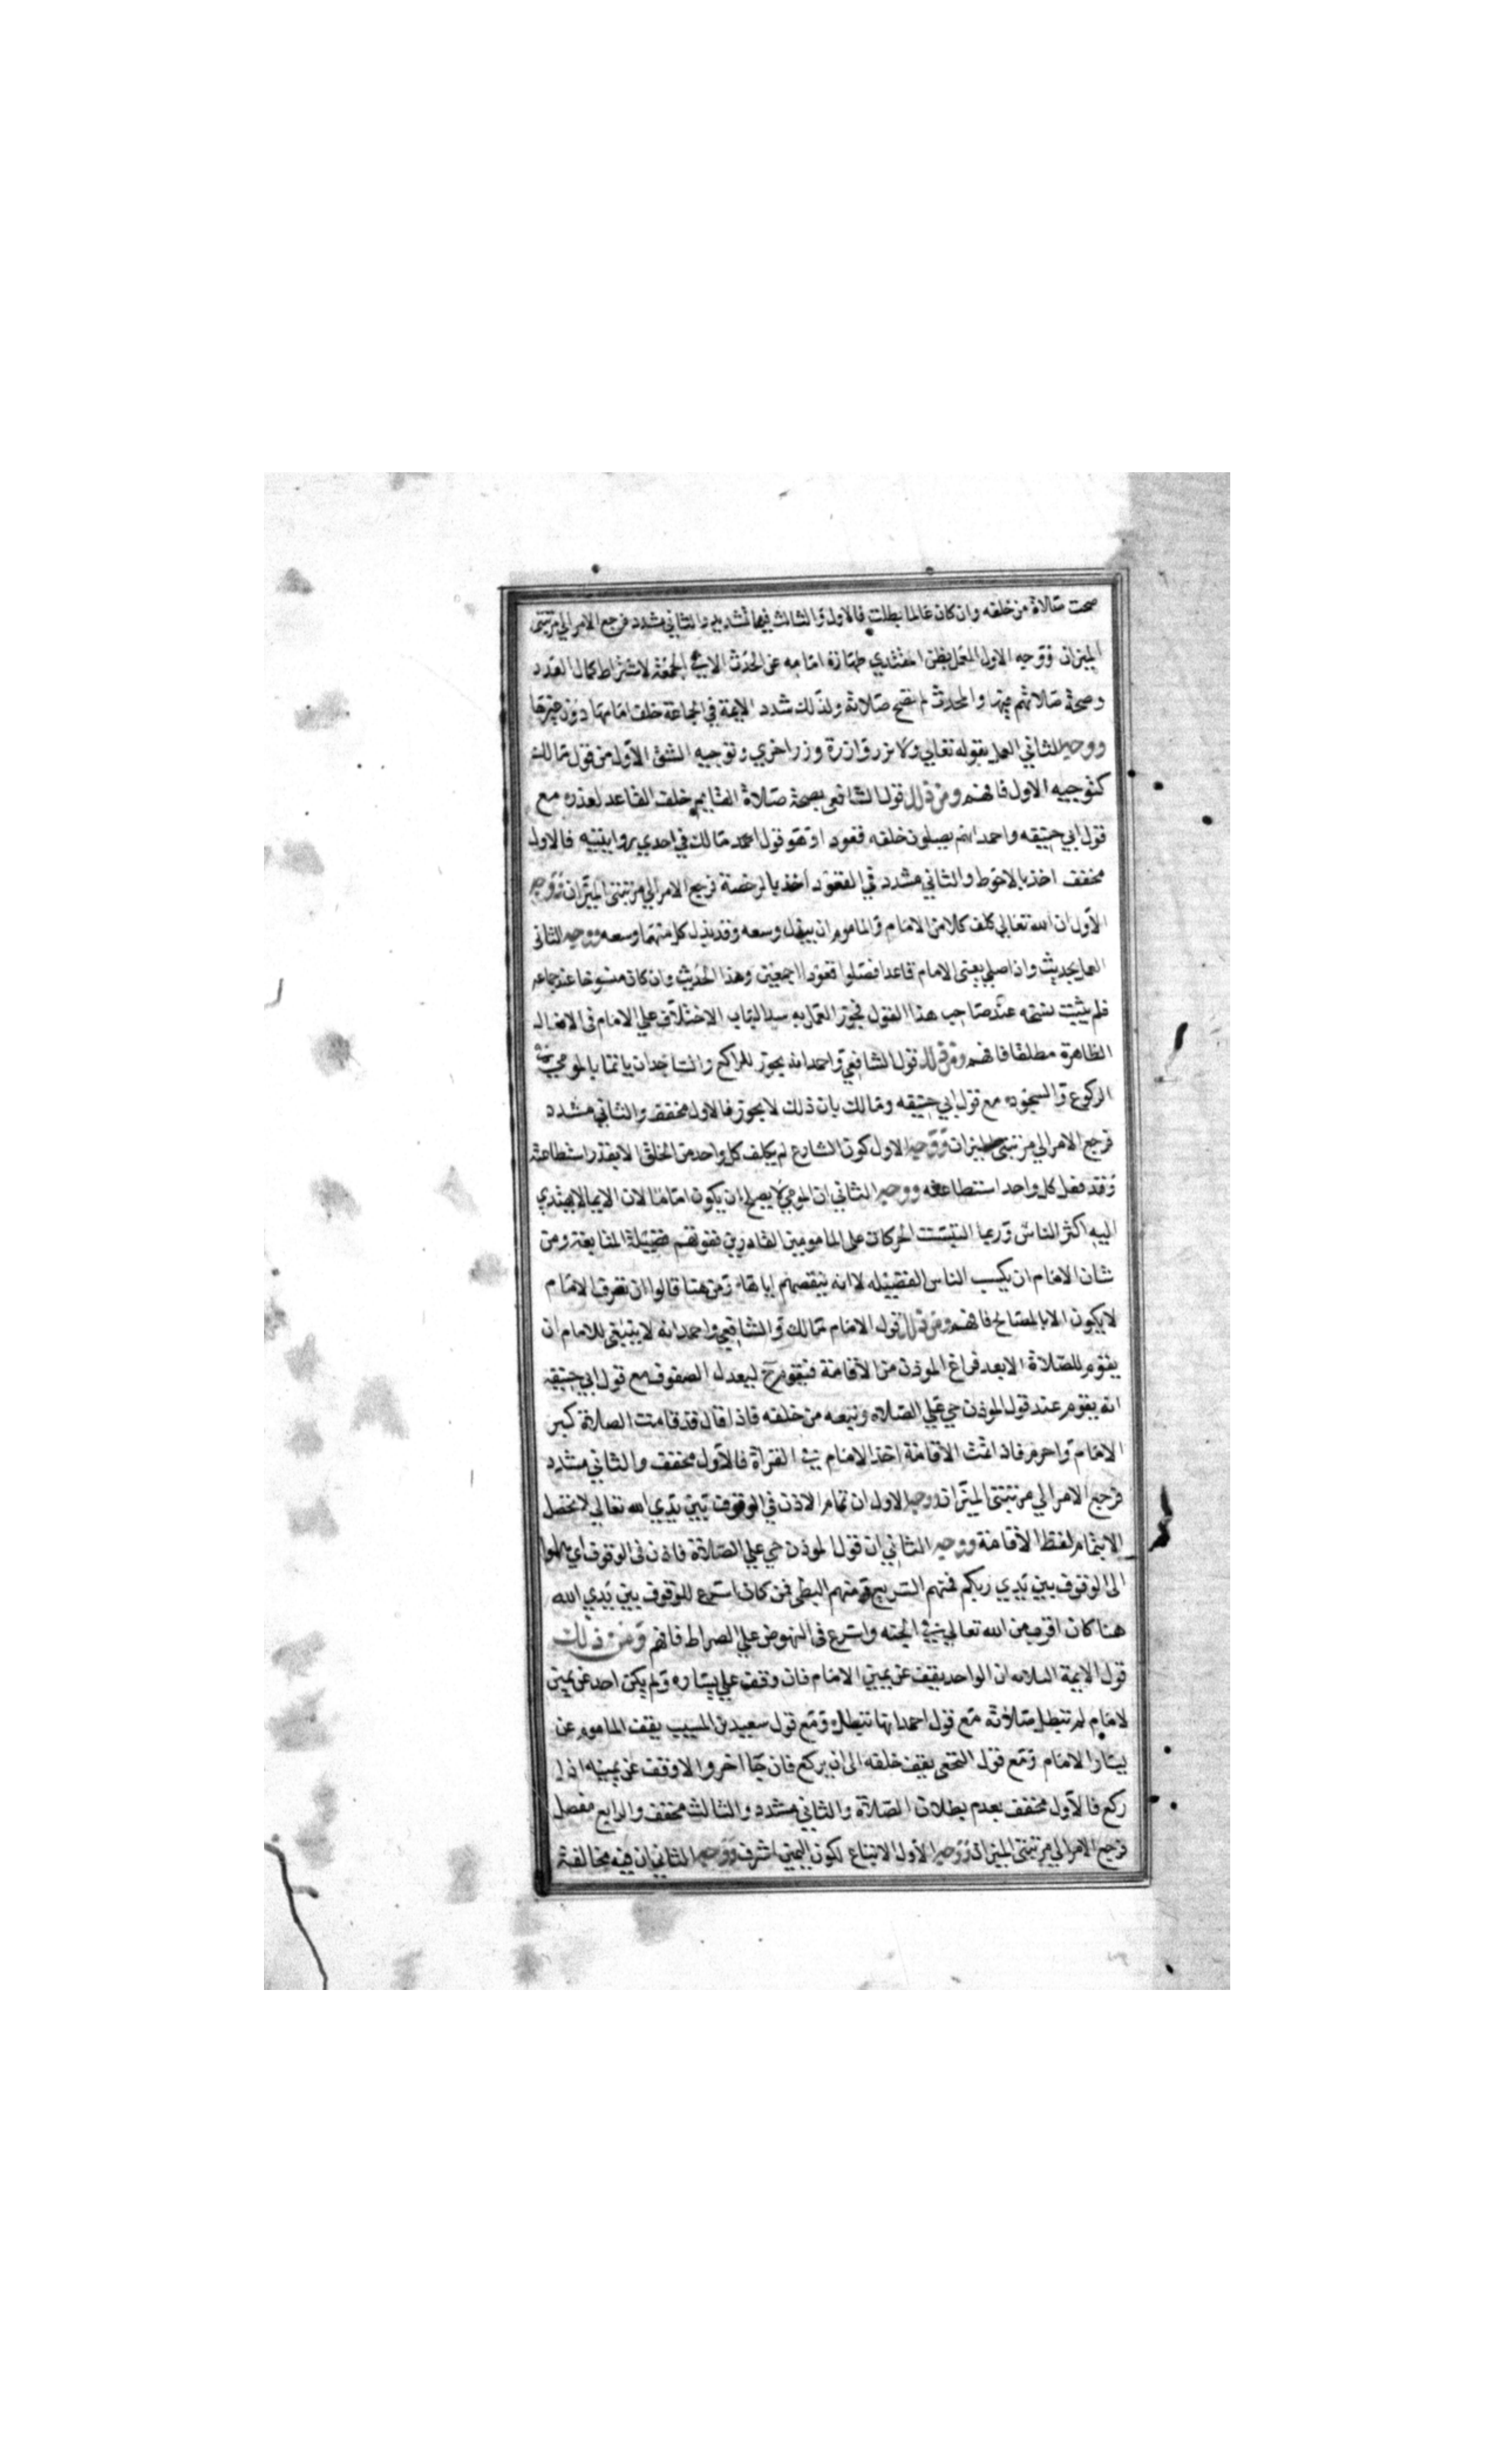 صحت صلاة من خلفه وان كان عالما بطلت فالاول والثالث فيهما تشديد والثاني مشدد فرجع الامر الي مرتبتي
الميزان ووجه الاول العمل بظن المقتدي طهارة امامه عن الحدث الا في الجمعة لاشتراط كمال العدد
وصحة صلاتهم فيها والمحدث لم تصح صلاته ولذلك شدد الايمة في الجماعة خلف امامها دون غيرها
ووجه الثاني العمل بقوله تعالي ولا تزر وازرة وزر اخري وتوجيه الشق الاول من قول مالك
كتوجيه الاول فافهم ومن ذلك قول الشافعي بصحة صلاة القايم خلف القاعد لعذره مع
قول ابي حنيفه واحمد انهم يصلون خلفه قعودا وهو قول مالك في احدي روايتيه فالاول
مخفف اخذ بالاحوط والثاني مشدد في القعود اخذ بالرخصة فرجع الامر الي مرتبتي الميزان ووجه
الاول ان الله تعالي كلف كلا من الامام والماموم ان يبذل وسعه وقد بذل كل منهما وسعه ووجه الثاني
العمل بحديث واذا صلي يعني الامام قاعدا فصلوا قعودا اجمعين وهذا الحديث وان كان منسوخا عند جماعه
فلم يثبت نسخه عند صاحب هذا القول فجوز العمل به سدا لباب الاختلاف علي الامام في الافعال
الظاهرة مطلقا فافهم ومن ذلك قول الشافعي واحمد انه يجوز للراكع والساجد ان ياتما بالمومي في
الركوع والسجود مع قول ابي حنيفه ومالك بان ذلك لا يجوز فالاول مخفف والثاني مشدد
فرجع الامر الي مرتبتي الميزان ووجه الاول كون الشارع لم يكلف كل واحد من الخلق الا بقدر استطاعته
وقد فعل كل واحد استطاعته ووجه الثاني ان المومي لا يصلح ان يكون اماما لان الايما لا يهتدي
اليه اكثر الناس وربما التبست الحركات علي المامومين القادرين ففوتهم فضيلة المتابعة ومن
شان الامام ان يكسب الناس الفضيله لا انه ينقصهم اياها ومن هنا قالوا ان تصرف الامام
لا يكون الا بالمصالح فافهم ومن ذلك قول الامام مالك والشافعي واحمد انه لا ينبغي للامام ان
يقوم للصلاة الا بعد فراغ الموذن من الاقامة فيقوم ح ليعدل الصفوف مع قول ابي حنيفة
انه يقوم عند قول الموذن حي علي الصلاه ويتبعه من خلفه فاذا قال قد قامت الصلاة كبر
الامام واحرم فاذا تمت الاقامة اخذ الامام في القراة فالاول مخفف والثاني مشدد
فرجع الامر الي مرتبتي الميزان ووجه الاول ان تمام الاذن في الوقوف بين يدي الله تعالي لا تحصل
الا بتمام لفظ الاقامة ووجه الثاني ان قول الموذن حي علي الصلاة فاذن في الوقوف اي هلموا
الي الوقوف بين يدي ربكم فمنهم السريع ومنهم البطي فمن كان اسرع للوقوف بين يدي الله
هنا كان اقرب من الله تعالي في الجنه واسرع في النهوض علي الصراط فافهم ومن ذلك
قول الايمة الثلاثه ان الواحد يقف عن يمين الامام فان وقف علي يساره ولم يكن احد عن يمين
الامام لم تبطل صلاته مع قول احمد انها تبطل ومع قول سعيد بن المسيب يقف الماموم عن
يسار الامام ومع قول النخعي يقف خلفه الي ان يركع فان جا اخر والا وقف عن يمينه اذا
ركع فالاول مخفف بعدم بطلان الصلاة والثاني مشدد والثالث مخفف والرابع مفصل
فرجع الامر الي مرتبتي الميزان ووجه الاول الاتباع لكون اليمين اشرف ووجه الثاني ان فيه مخالفة